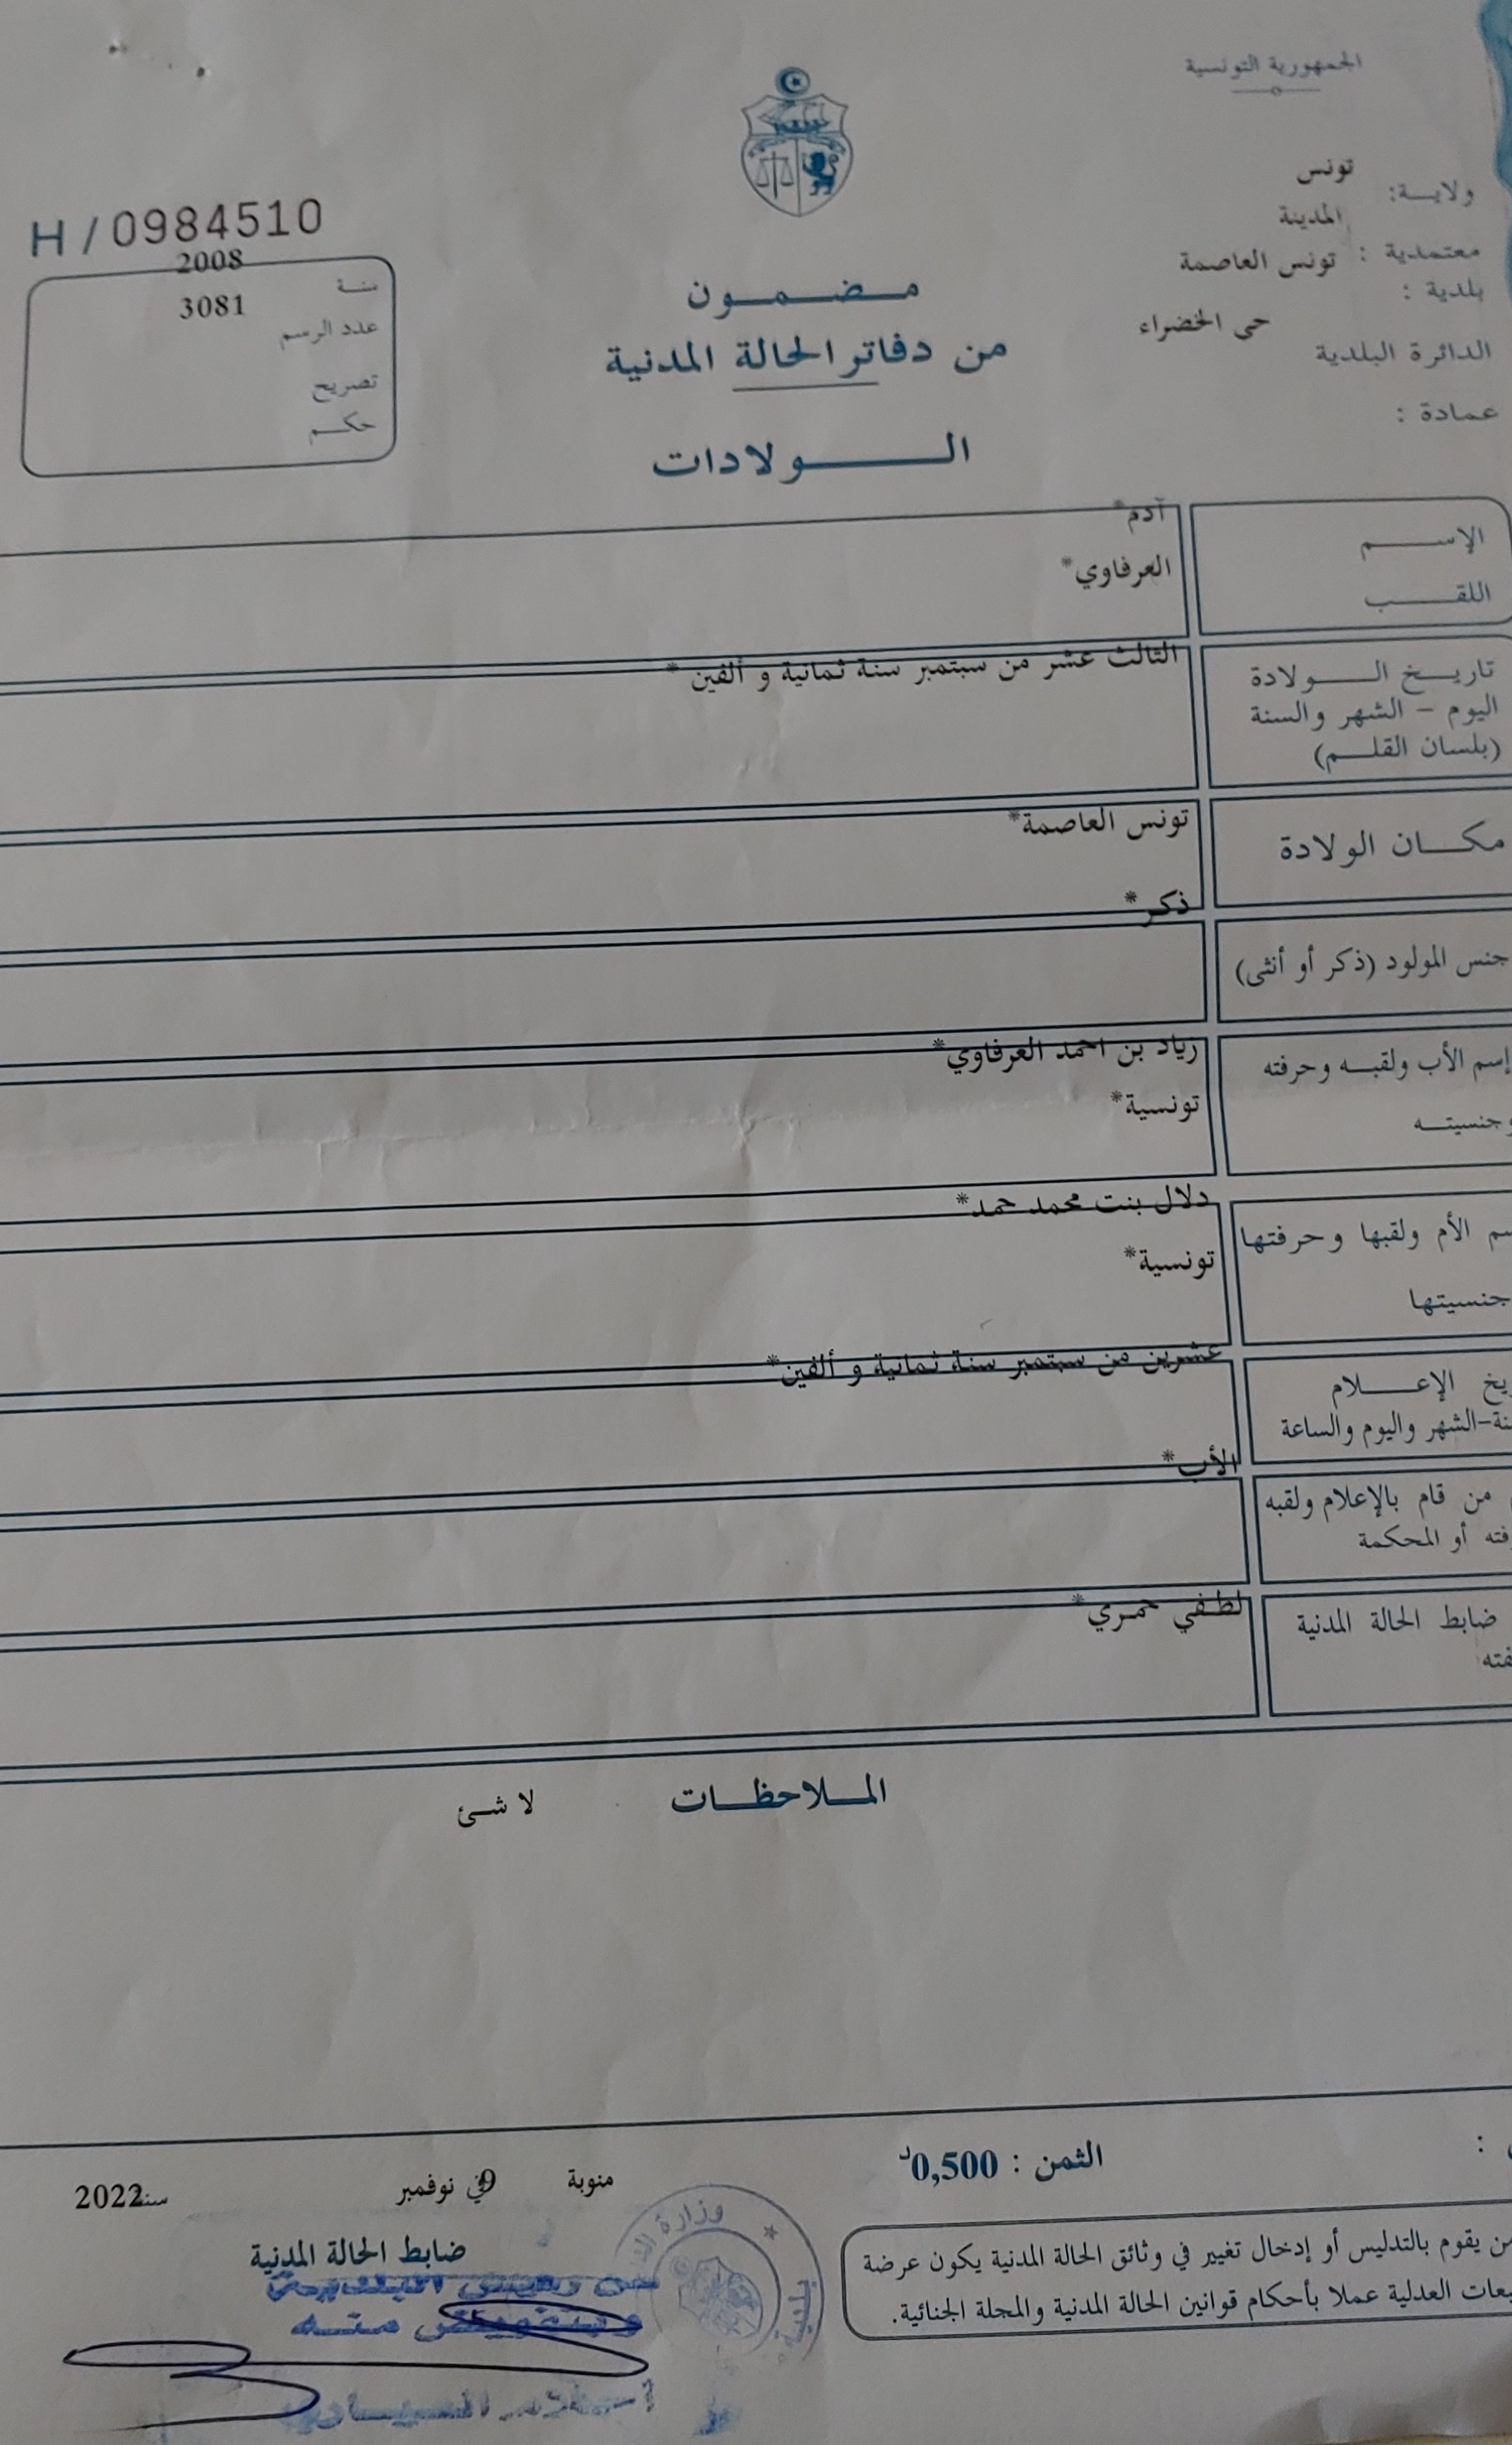 الجمهورية التونسية
ولاية: تونس
المدينة
معتمدية : تونس العاصمة
بلدية :
الدائرة البلدية حى الخضراء
عمادة :
H / 0984510
سنة 2008
عدد الرسم 3081
تصريح
حكم
مضمون
من دفاتر الحالة المدنية
الولادات
الإسم آدم*
اللقب العرفاوي*
تاريخ الولادة الثالث عشر من سبتمبر سنة ثمانية و ألفين *
اليوم - الشهر والسنة
(بلسان القلم)
مكان الولادة تونس العاصمة*
جنس المولود (ذكر أو أنثى) ذكر*
إسم الأب ولقبه وحرفته رياد بن احمد العرفاوي*
وجنسيته تونسية*
سم الأم ولقبها وحرفتها دلال بنت محمد حمد*
جنسيتها تونسية*
ريخ الإعلام عشرين من سبتمبر سنة ثمانية و ألفين*
نة-الشهر واليوم والساعة
من قام بالإعلام ولقبه الأب*
فته أو المحكمة
ضابط الحالة المدنية لطفي حمري*
فته
الملاحظات لا شئ
الثمن : 0,500د
منوبة في 9 نوفمبر سنة 2022
ضابط الحالة المدنية
عن رئيس البلدية
و بتفويض منه
وزارة
بلدية
من يقوم بالتدليس أو إدخال تغيير في وثائق الحالة المدنية يكون عرضة
بعات العدلية عملا بأحكام قوانين الحالة المدنية والمجلة الجنائية.